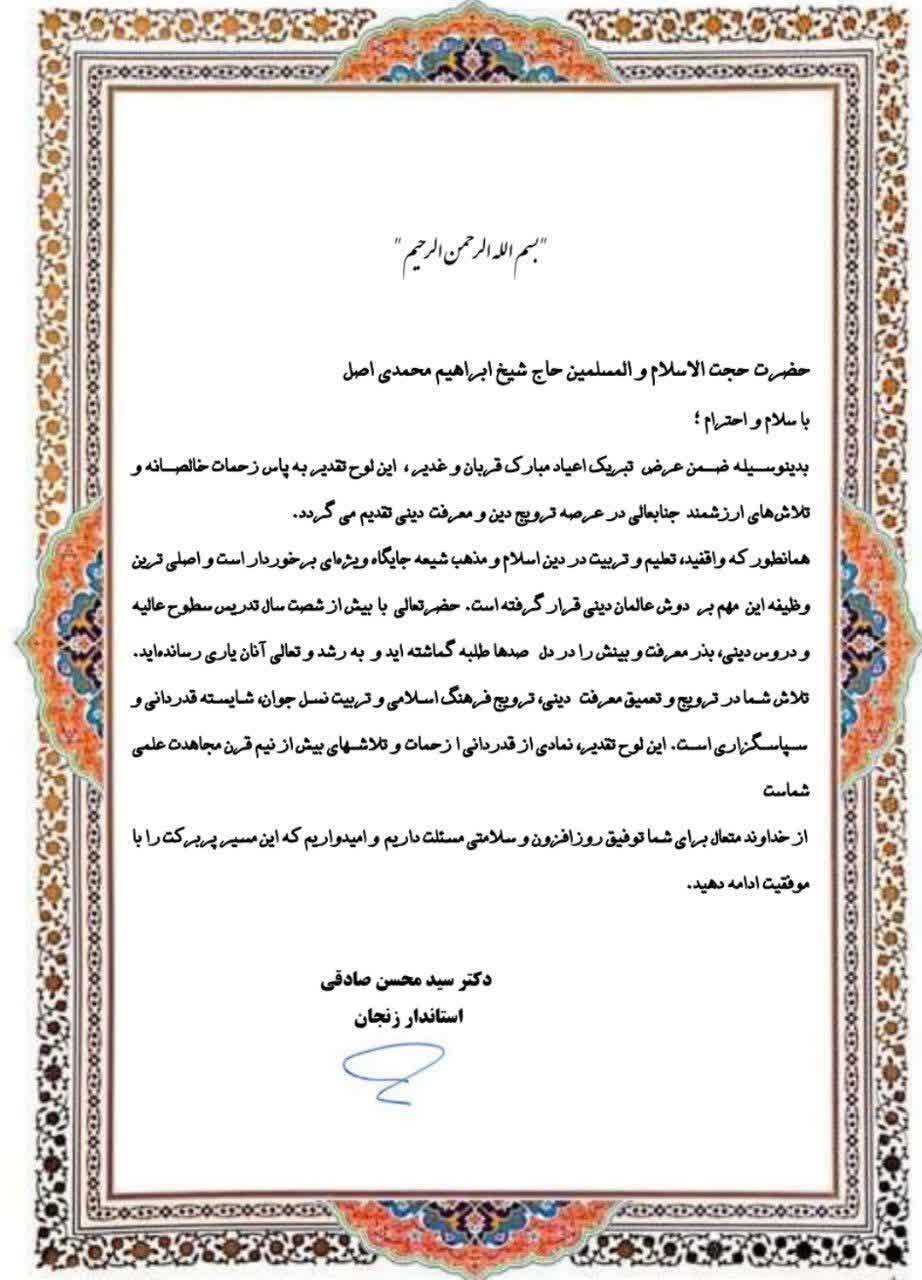 "بسم الله الرحمن الرحیم"
حضرت حجت الاسلام و المسلمین حاج شیخ ابراهیم محمدی اصل
با سلام و احترام ؛
بدینوسیله ضمن عرض تبریک اعیاد مبارک قربان و غدیر ، این لوح تقدیر به پاس زحمات خالصانه و
تلاش‌های ارزشمند جنابعالی در عرصه ترویج دین و معرفت دینی تقدیم می گردد.
همانطور که واقفید، تعلیم و تربیت در دین اسلام و مذهب شیعه جایگاه ویژه‌ای برخوردار است و اصلی ترین
وظیفه این مهم بر دوش عالمان دینی قرار گرفته است. حضرتعالی با بیش از شصت سال تدریس سطوح عالیه
و دروس دینی، بذر معرفت و بینش را در دل صدها طلبه گماشته اید و به رشد و تعالی آنان یاری رسانده‌اید.
تلاش شما در ترویج و تعمیق معرفت دینی، ترویج فرهنگ اسلامی و تربیت نسل جوان، شایسته قدردانی و
سپاسگزاری است. این لوح تقدیر، نمادی از قدردانی ا زحمات و تلاشهای بیش از نیم قرن مجاهدت علمی
شماست
از خداوند متعال برای شما توفیق روزافزون و سلامتی مسئلت داریم و امیدواریم که این مسیر پربرکت را با
موفقیت ادامه دهید.
دکتر سید محسن صادقی
استاندار زنجان